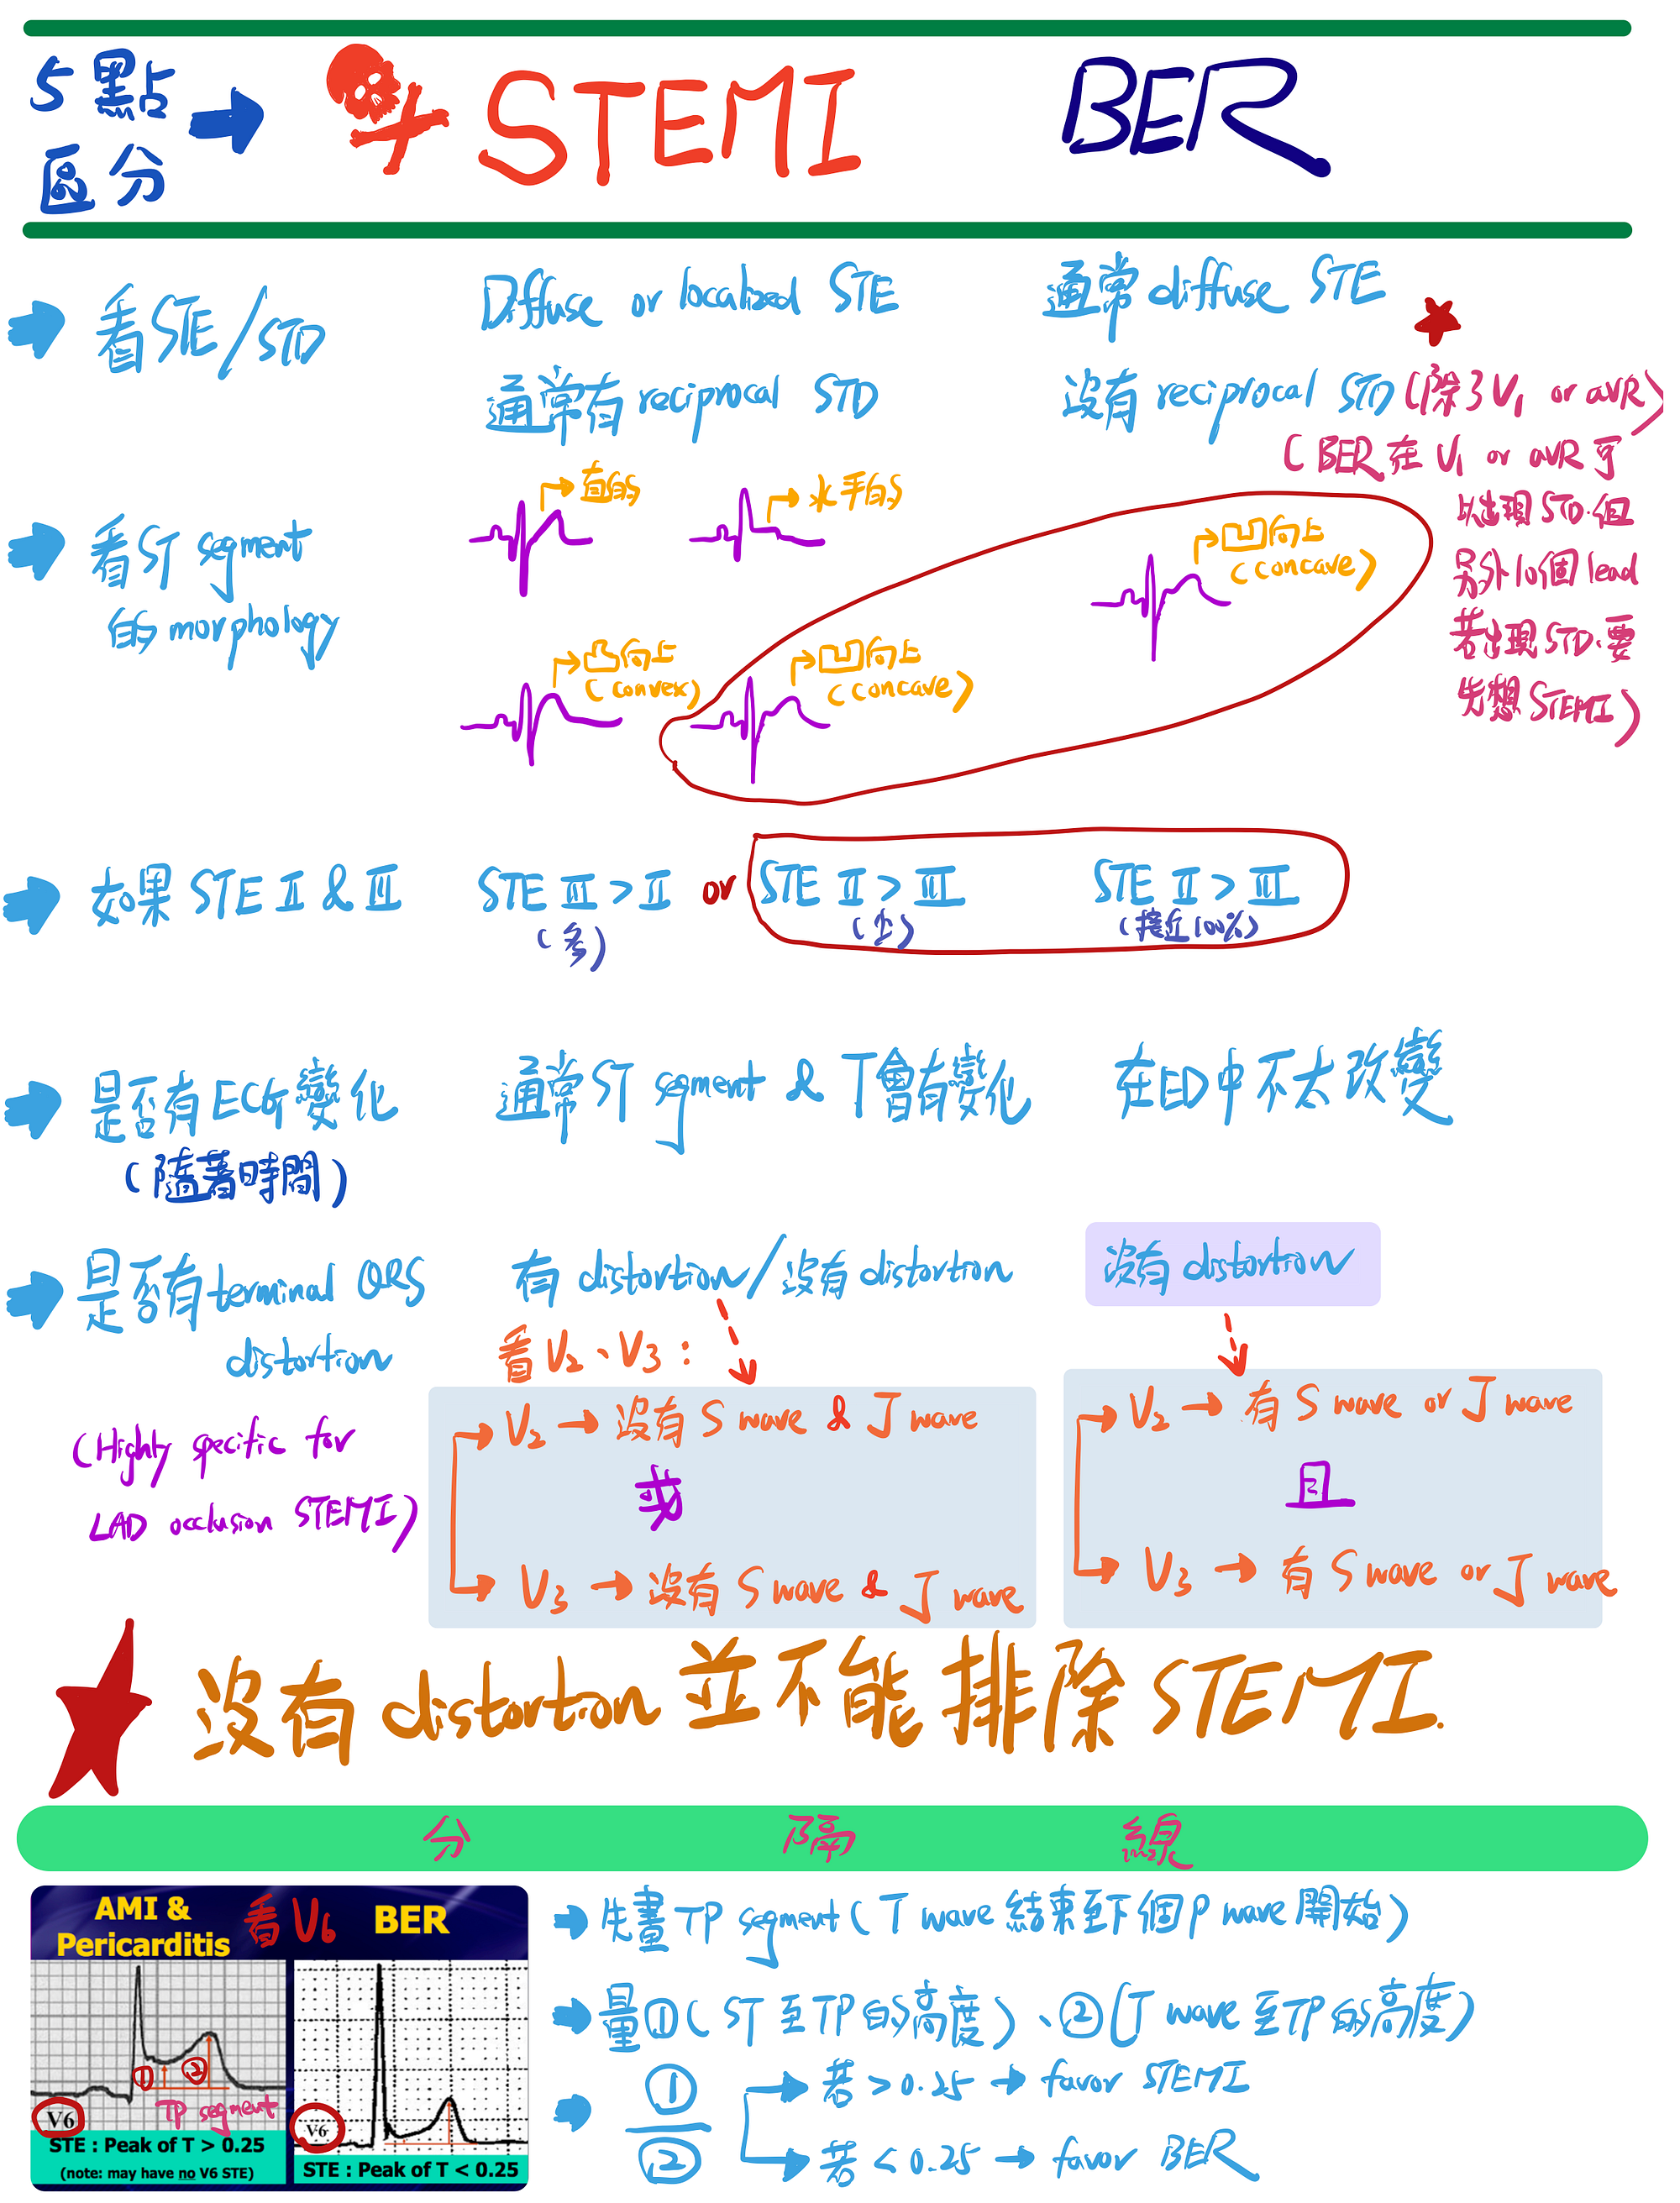 5點
區分
STEMI
BER
看STE/STD
Diffuse or localized STE
通常diffuse STE
通常有reciprocal STD
沒有reciprocal STD(除了V₁ or aVR)
(BER在V₁ or aVR可
以出現STD.但
另外10個lead
若出現STD.要
先想STEMI)
看ST segment
的morphology
直的
水平的
凹向上
(concave)
凸向上
(convex)
凹向上
(concave)
如果STE II & III
STE III > II or STE II > III
(多)
(少)
STE II > III
(接近100%)
是否有ECG變化
(隨著時間)
通常ST segment & T會有變化
在ED中不太改變
是否有terminal QRS
distortion
(Highly specific for
LAD occlusion STEMI)
有distortion/沒有distortion
沒有distortion
看V₂、V₃:
V₂→沒有S wave & J wave
或
V₃→沒有S wave & J wave
V₂→有S wave or J wave
且
V₃→有S wave or J wave
沒有distortion並不能排除STEMI.
分 隔 線
AMI &
Pericarditis
看V₆
BER
① ②
TP segment
V6
V6
STE : Peak of T > 0.25
(note: may have no V6 STE)
STE : Peak of T < 0.25
先畫TP segment(T wave結束至下個P wave開始)
量①(ST至TP的高度)、②(T wave至TP的高度)
①
②
若>0.25→favor STEMI
若<0.25→favor BER